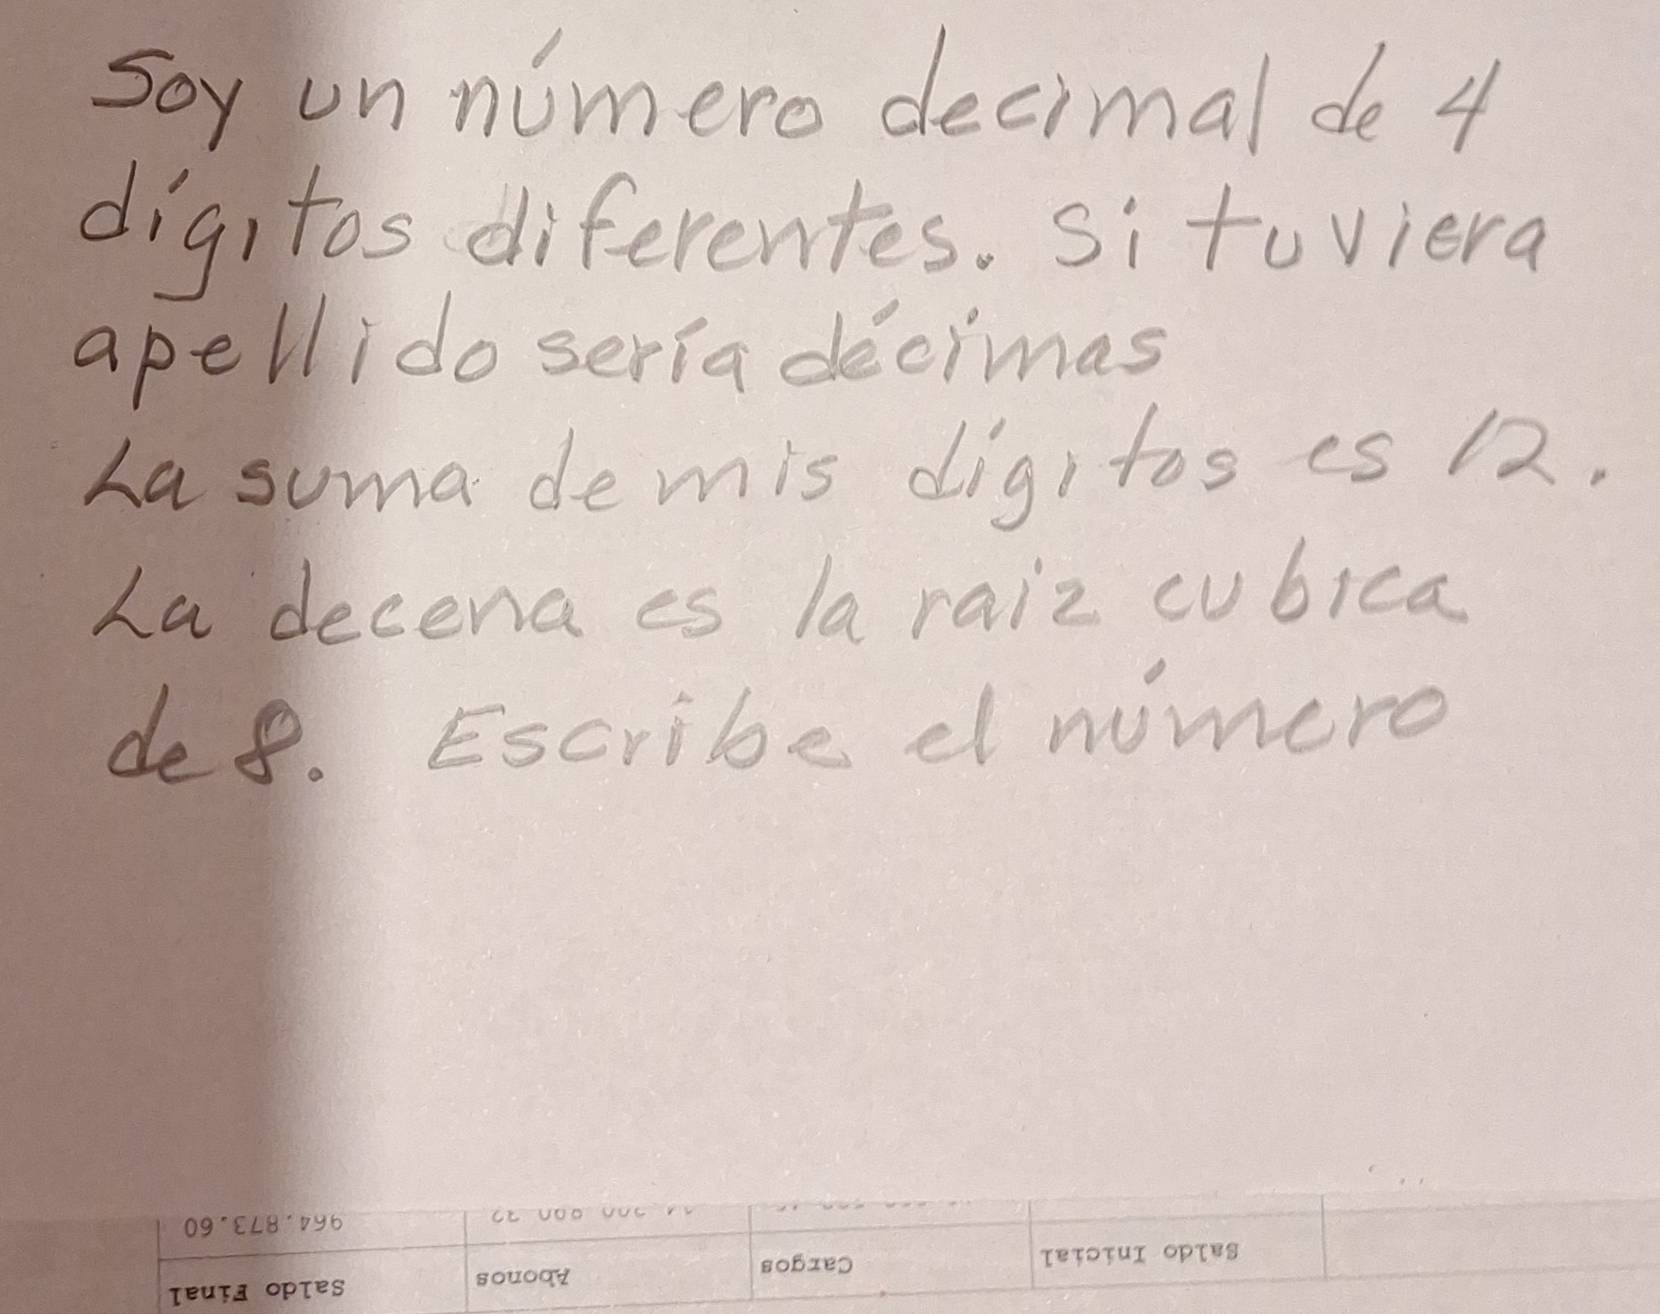 Soy un número decimal de 4
dígitos diferentes. Si tuviera
apellido sería décimas
La suma de mis dígitos es 12.
La decena es la raiz cubica
de 8. Escribe el número
964.873.60
Saldo Inicial
Cargos
Abonos
Saldo Final